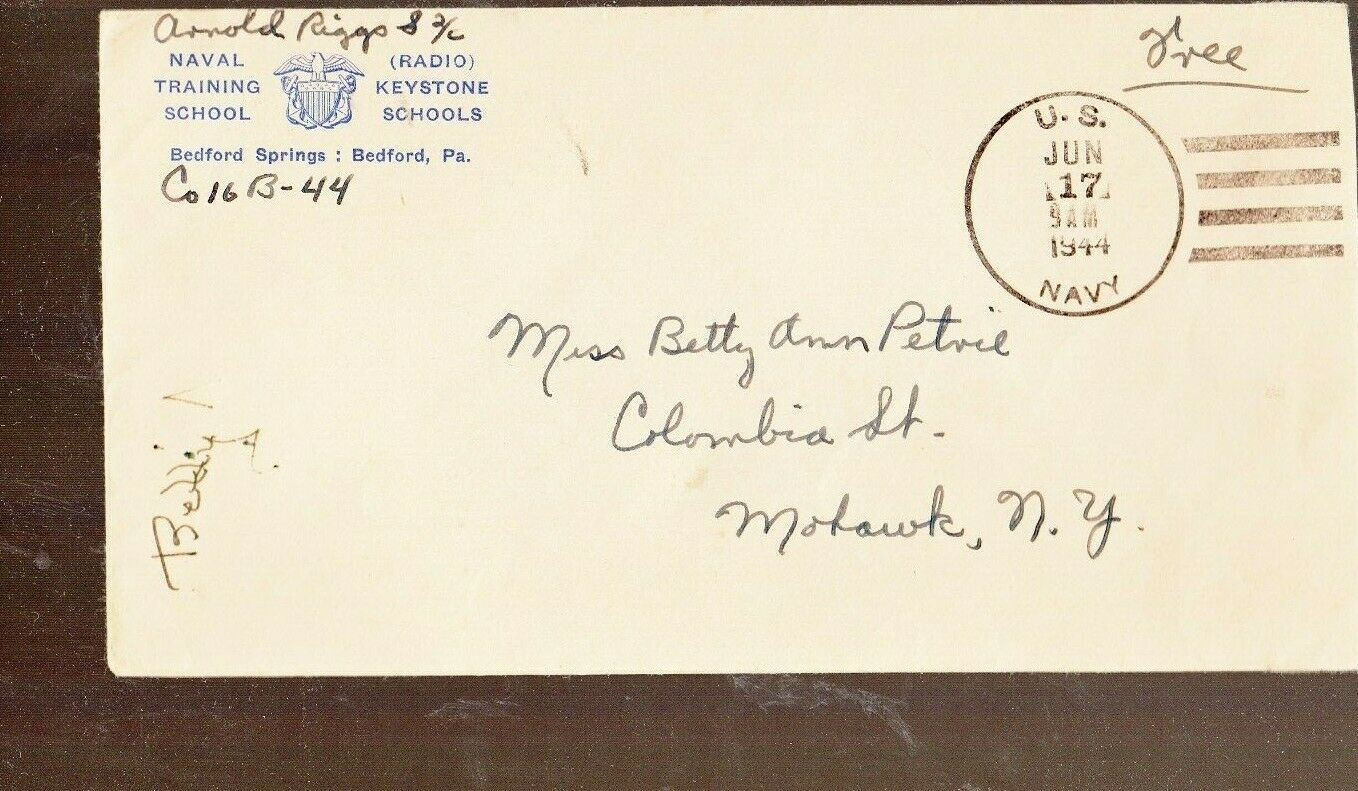 Arnold Riggs S 2/c
NAVAL TRAINING SCHOOL
(RADIO) KEYSTONE SCHOOLS
Bedford Springs : Bedford, Pa.
Co 16 B-44
Free
U. S.
JUN
17
9 AM
1944
NAVY
Miss Betty Ann Petrie
Colombia St.
Mohawk, N. Y.